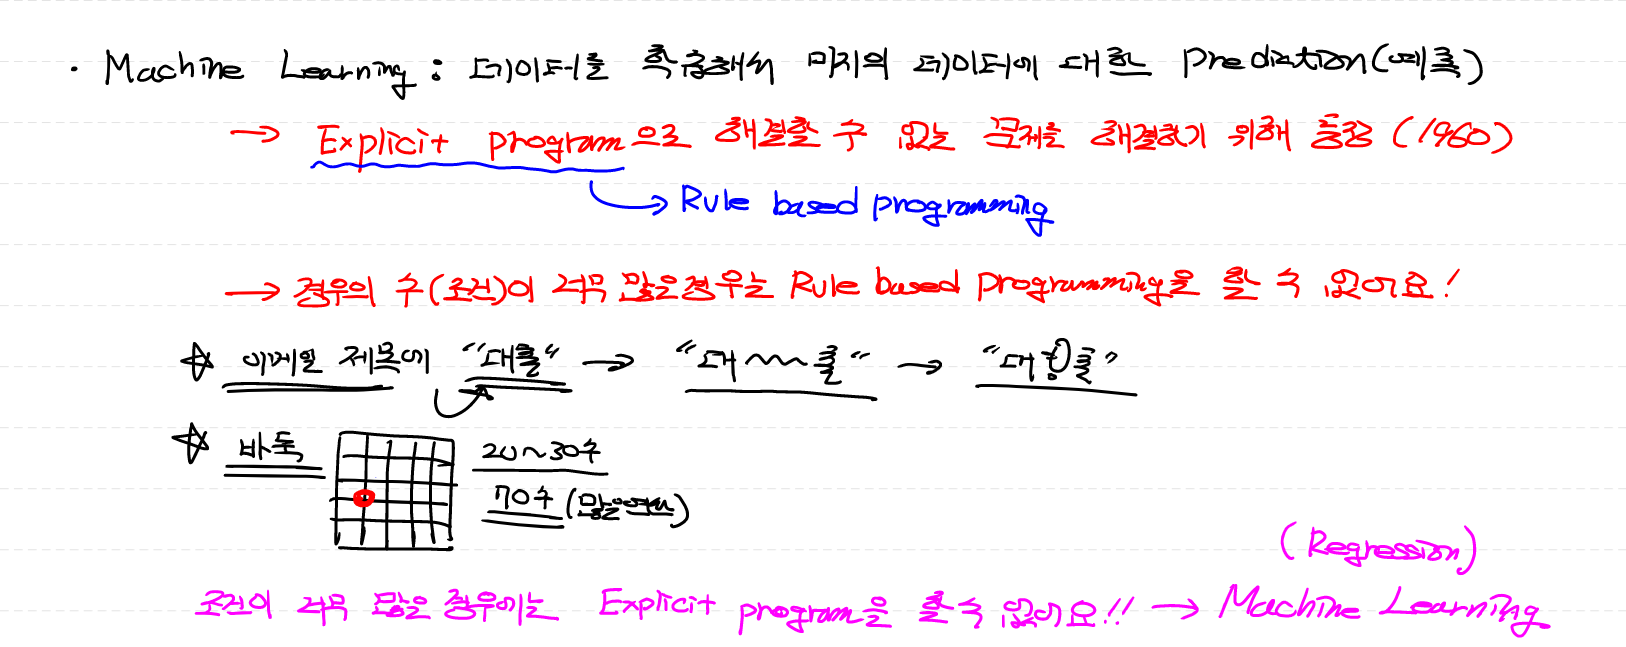 · Machine Learning : 데이터를 학습해서 미지의 데이터에 대한 Prediction(예측)
→ Explicit program으로 해결할 수 없는 문제를 해결하기 위해 등장 (1960)
→ Rule based programming
→ 경우의 수(조건)이 너무 많은경우는 Rule based programming을 할 수 없어요!
☆ 이메일 제목에 "대출" → "대~~~출" → "대힝출"
☆ 바둑 20~30수
70수 (많은연산)
(Regression)
조건이 너무 많은 경우에는 Explicit program을 할 수 없어요!! → Machine Learning